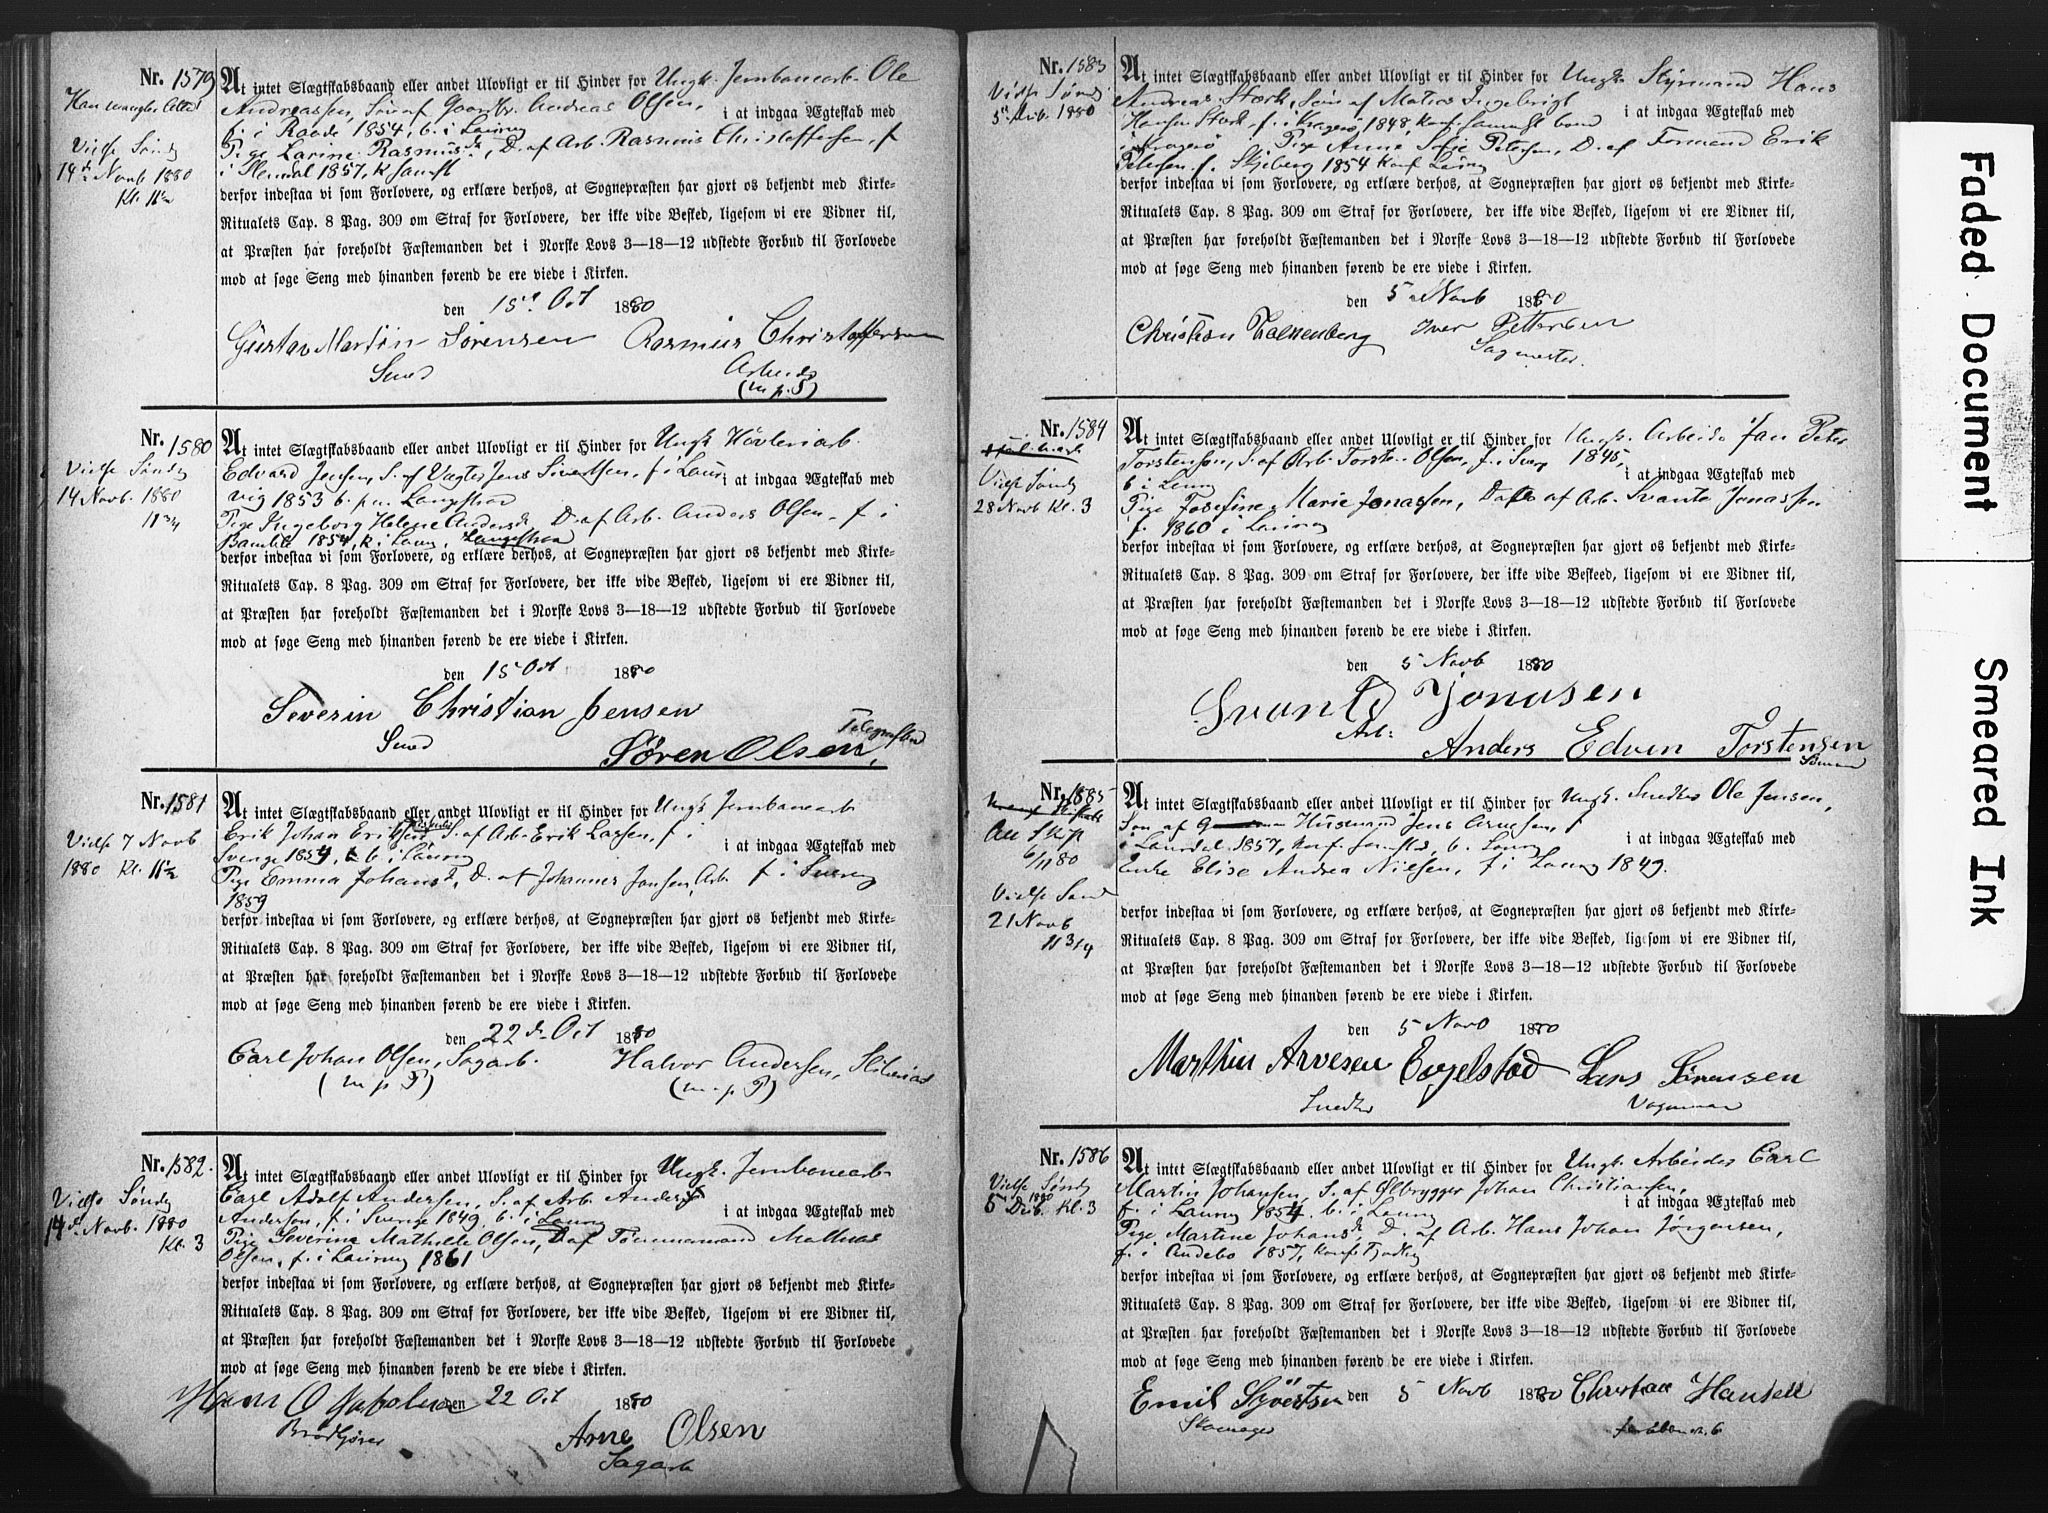 Nr. 1579
Vielse Sønd
14de Novb 1880
Kl. 11½
At intet Slægtskabsbaand eller andet Ulovligt er til Hinder for Ungk. Jernbanearb. Ole
Andreassen, Søn af Gaardbr. Andreas Olsen, i at indgaa Ægteskab med
f. i Raade 1854, b. i Laurvg
Pige Larine Rasmusd., D. af Arb. Rasmus Christoffersen, f
i Slemdal 1857, k samst
derfor indestaa vi som Forlovere, og erklære derhos, at Sognepræsten har gjort os bekjendt med Kirke-
Ritualets Cap. 8 Pag. 309 om Straf for Forlovere, der ikke vide Besked, ligesom vi ere Vidner til,
at Præsten har foreholdt Fæstemanden det i Norske Lovs 3—18—12 udstedte Forbud til Forlovede
mod at søge Seng med hinanden førend de ere viede i Kirken.
den 15de Oct 1880
Gustav Martin Sørensen Rasmus Christoffersen
Smed Arbeids
(m. p. S)
Nr. 1580
Vielse Sønd
14 Novb. 1880
11 3/4
At intet Slægtskabsbaand eller andet Ulovligt er til Hinder for Ungk Høvleriarb.
Edvard Jensen, S. af Vægter Jens Sivertsen, f. i Laur i at indgaa Ægteskab med
vig 1853 b. p. Langestrand
Pige Ingeborg Helene Andersd. D. af Arb. Anders Olsen, f. i
Bamble 1854, k i Laurv, Langestran
derfor indestaa vi som Forlovere, og erklære derhos, at Sognepræsten har gjort os bekjendt med Kirke-
Ritualets Cap. 8 Pag. 309 om Straf for Forlovere, der ikke vide Besked, ligesom vi ere Vidner til,
at Præsten har foreholdt Fæstemanden det i Norske Lovs 3—18—12 udstedte Forbud til Forlovede
mod at søge Seng med hinanden førend de ere viede i Kirken.
den 15 Oct 1880
Severin Christian Jensen
Smed
Søren Olsen,
Nr. 1581
Vielse 7 Novb
1880 Kl. 11½
At intet Slægtskabsbaand eller andet Ulovligt er til Hinder for Ungk Jernbanearb
Erik Johan Eriksen S. af Arb Erik Larsen, f. i
Sverge 1854, b. i Laurvg i at indgaa Ægteskab med
Pige Emma Johansd, D. af Johannes Jansen, Arb. f. i Sverig
1859
derfor indestaa vi som Forlovere, og erklære derhos, at Sognepræsten har gjort os bekjendt med Kirke-
Ritualets Cap. 8 Pag. 309 om Straf for Forlovere, der ikke vide Besked, ligesom vi ere Vidner til,
at Præsten har foreholdt Fæstemanden det i Norske Lovs 3—18—12 udstedte Forbud til Forlovede
mod at søge Seng med hinanden førend de ere viede i Kirken.
den 22de Oct 1880
Carl Johan Olsen, Sagarb. Halvor Andersen,
(m p P) (m. p. P)
Nr. 1582.
Vielse Sønd
14de Novb. 1880
Kl. 3
At intet Slægtskabsbaand eller andet Ulovligt er til Hinder for Ungk. Jernbanearb
Carl Adolf Andersen, S. af Arb Anders
Andersen, f. i Sverige 1849, b. i Laurvg i at indgaa Ægteskab med
Pige Severine Mathilde Olsen, D. af Tømmermand Mathias
Olsen, f. i Laurvg 1861
derfor indestaa vi som Forlovere, og erklære derhos, at Sognepræsten har gjort os bekjendt med Kirke-
Ritualets Cap. 8 Pag. 309 om Straf for Forlovere, der ikke vide Besked, ligesom vi ere Vidner til,
at Præsten har foreholdt Fæstemanden det i Norske Lovs 3—18—12 udstedte Forbud til Forlovede
mod at søge Seng med hinanden førend de ere viede i Kirken.
den 22 Oct 1880
Arne Olsen
Sagarb
Nr. 1583
Vielse Sønd
5te Dcb. 1880
At intet Slægtskabsbaand eller andet Ulovligt er til Hinder for Ungk. Styrmand Hans
Andreas Stork, Søn af Matros Ingebrigt
Hansen Stork, f. i Kragerø 1848, konf. samst. boend i at indgaa Ægteskab med
i Kragerø Pige Anne Sofie Petersen, D. af Formand Erik
Petersen, f. Skjeberg 1854 konf Laurvg
derfor indestaa vi som Forlovere, og erklære derhos, at Sognepræsten har gjort os bekjendt med Kirke-
Ritualets Cap. 8 Pag. 309 om Straf for Forlovere, der ikke vide Besked, ligesom vi ere Vidner til,
at Præsten har foreholdt Fæstemanden det i Norske Lovs 3—18—12 udstedte Forbud til Forlovede
mod at søge Seng med hinanden førend de ere viede i Kirken.
den 5 Novb 1880
Christian Falkenberg Iver Pettersen
Sagmester.
Nr. 1584
Vielse Sønd
28 Novb Kl. 3
At intet Slægtskabsbaand eller andet Ulovligt er til Hinder for Ungk. Arbeids Jan Peter
Torstensen, S. af Arb. Torsten Olsen, f. i Sverg 1845, i at indgaa Ægteskab med
b i Laurvg
Pige Josefine Marie Jonassen, Datter af Arb. Svante Jonassen
f. 1860 i Laurvg
derfor indestaa vi som Forlovere, og erklære derhos, at Sognepræsten har gjort os bekjendt med Kirke-
Ritualets Cap. 8 Pag. 309 om Straf for Forlovere, der ikke vide Beskeed, ligesom vi ere Vidner til,
at Præsten har foreholdt Fæstemanden det i Norske Lovs 3—18—12 udstedte Forbud til Forlovede
mod at søge Seng med hinanden førend de ere viede i Kirken.
den 5 Novb 1880
Svante Jonasen
Arb.
Anders Edvin Torstensen
Nr. 1585
6/11 80
Vielse Sønd
21 Novb
11 3/4
At intet Slægtskabsbaand eller andet Ulovligt er til Hinder for Ungk. Snedker Ole Jensen,
Søn af Husmand Jens Arnesen, f
i Laurdal 1857, konf. samsted, b. Laurvg i at indgaa Ægteskab med
Enke Elise Andrea Nielsen, f. i Laurvg 1849.
derfor indestaa vi som Forlovere, og erklære derhos, at Sognepræsten har gjort os bekjendt med Kirke-
Ritualets Cap. 8 Pag. 309 om Straf for Forlovere, der ikke vide Besked, ligesom vi ere Vidner til,
at Præsten har foreholdt Fæstemanden det i Norske Lovs 3—18—12 udstedte Forbud til Forlovede
mod at søge Seng med hinanden førend de ere viede i Kirken.
den 5 Novb 1880
Marthin Arvesen Engelstad Lars Sørensen
Snedker Vognmand
Nr. 1586
Vielse Sønd
5 Dcb. 1880 Kl. 3
At intet Slægtskabsbaand eller andet Ulovligt er til Hinder for Ungk. Arbeider Carl
Martin Johansen, S. af Ølbrygger Johan Christiansen, i at indgaa Ægteskab med
f. i Laurvg 1854. b. i Laurvg
Pige Martine Johansd, D. af Arb. Hans Johan Jørgensen,
f. i Andebo 1857, konf. Tjødling
derfor indestaa vi som Forlovere, og erklære derhos, at Sognepræsten har gjort os bekjendt med Kirke-
Ritualets Cap. 8 Pag. 309 om Straf for Forlovere, der ikke vide Besked, ligesom vi ere Vidner til,
at Præsten har foreholdt Fæstemanden det i Norske Lovs 3—18—12 udstedte Forbud til Forlovede
mod at søge Seng med hinanden førend de ere viede i Kirken.
Emil Syvertsen den 5 Novb 1880 Christian Hansen
Skomager
Faded Document
Smeared Ink